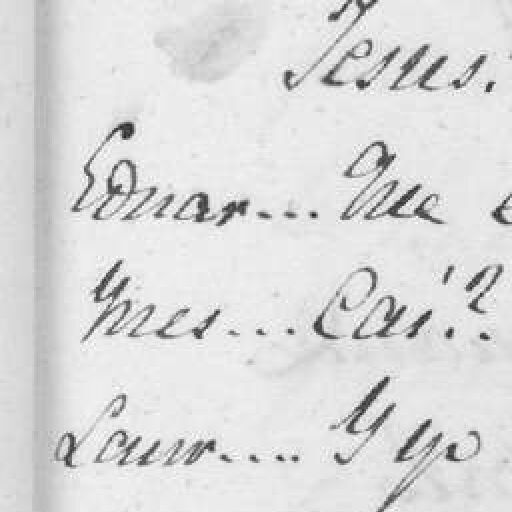 Jesus.
Eduar... Que
Ynes... Cai.?
Laur.... Y yo